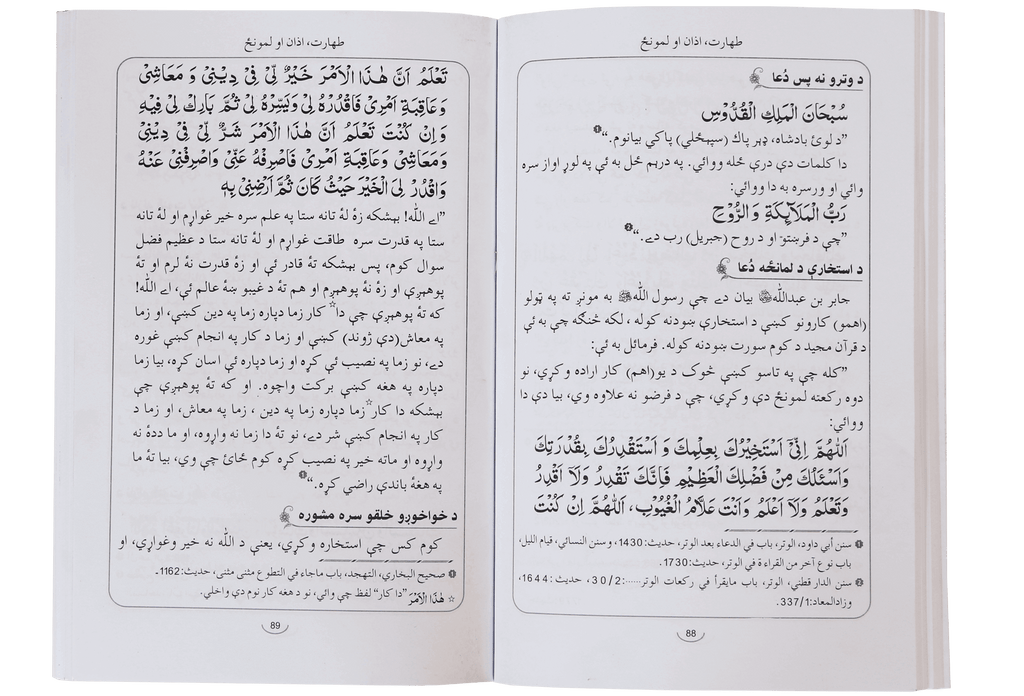 طهارت، اذان او لمونځ
د وترو نه پس دُعا
سُبْحَانَ الْمَلِكِ الْقُدُّوْسِ
”د لوئ بادشاه، ډېر پاك (سپېڅلي) پاکي بيانوم.“❶
دا کلمات دې درې ځله ووائي. په درېم ځل به ئې په لوړ اواز سره
وائي او ورسره به دا ووائي:
رَبُّ الْمَلَآئِكَةِ وَ الرُّوْحِ
”چې د فرښتو او د روح (جبريل) رب دے.“❷
د استخارې د لمانځه دُعا
جابر بن عبدالله بيان دے چې رسول الله ﷺ به مونږ ته په ټولو
(اهمو) کارونو کښې د استخارې ښودنه کوله ، لکه څنګه چې به ئې
د قرآن مجيد د کوم سورت ښودنه کوله. فرمائل به ئې:
”کله چې په تاسو کښې څوک د يو(اهم) کار اراده وکړي، نو
دوه رکعته لمونځ دې وکړي، چې د فرضو نه علاوه وي، بيا دې دا
ووائي:
اَللّٰهُمَّ اِنِّىْٓ اَسْتَخِيْرُكَ بِعِلْمِكَ وَ اَسْتَقْدِرُكَ بِقُدْرَتِكَ
وَاَسْئَلُكَ مِنْ فَضْلِكَ الْعَظِيْمِ فَاِنَّكَ تَقْدِرُ وَلَآ اَقْدِرُ
وَتَعْلَمُ وَلَآ اَعْلَمُ وَاَنْتَ عَلَّامُ الْغُيُوْبِ، اَللّٰهُمَّ اِنْ كُنْتَ
❶ سنن أبي داود، الوتر، باب في الدعاء بعد الوتر، حديث:1430، وسنن النسائي، قيام الليل،
باب نوع آخر من القراءة في الوتر، حديث:1730.
❷ سنن الدار قطني، الوتر، باب مايقرأ في ركعات الوتر.....:30/2، حديث:1644،
وزادالمعاد:337/1.
88
طهارت، اذان او لمونځ
تَعْلَمُ اَنَّ هٰذَا الْاَمْرَ خَيْرٌ لِّىْ فِىْ دِيْنِىْ وَ مَعَاشِىْ
وَعَاقِبَةِ اَمْرِىْ فَاقْدُرْهُ لِىْ وَيَسِّرْهُ لِىْ ثُمَّ بَارِكْ لِىْ فِيْهِ
وَ اِنْ كُنْتَ تَعْلَمُ اَنَّ هٰذَا الْاَمْرَ شَرٌّ لِّىْ فِىْ دِيْنِىْ
وَمَعَاشِىْ وَعَاقِبَةِ اَمْرِىْ فَاصْرِفْهُ عَنِّىْ وَاصْرِفْنِىْ عَنْهُ
وَاقْدُرْ لِىَ الْخَيْرَ حَيْثُ كَانَ ثُمَّ اَرْضِنِىْ بِهٖ
”اے الله! بېشکه زهٔ لهٔ تانه ستا په علم سره خير غواړم او لهٔ تانه
ستا په قدرت سره طاقت غواړم او لهٔ تانه ستا د عظيم فضل
سوال کوم، پس بېشکه تهٔ قادر ئې او زهٔ قدرت نهٔ لرم او تهٔ
پوهېږې او زهٔ نهٔ پوهېږم او هم تهٔ د غيبو ښهٔ عالم ئې، اے الله!
که تهٔ پوهېږې چې دا☆ کار زما دپاره زما په دين کښې، او زما
په معاش(دې ژوند) کښې او زما د کار په انجام کښې غوره
دے، نو زما په نصيب ئې کړه او زما دپاره ئې اسان کړه، بيا زما
دپاره په هغه کښې برکت واچوه. او که تهٔ پوهېږې چې
بېشکه دا کار☆ زما دپاره زما په دين ، زما په معاش، او زما د
کار په انجام کښې شر دے، نو تهٔ دا زما نه واړوه، او ما ددهٔ نه
واړوه او ماته خير په نصيب کړه کوم ځائ چې وي، بيا تهٔ ما
په هغهٔ باندې راضي کړه.“❶
د خواخوږو خلقو سره مشوره
کوم کس چې استخاره وکړي، يعنې د الله نه خير وغواړي، او
❶ صحيح البخاري، التهجد، باب ماجاء في التطوع مثنى مثنى، حديث:1162۔
☆ هٰذَا الْاَمْرَ ”دا کار“ لفظ چې وائي، نو د هغه کار نوم دې واخلي.
89